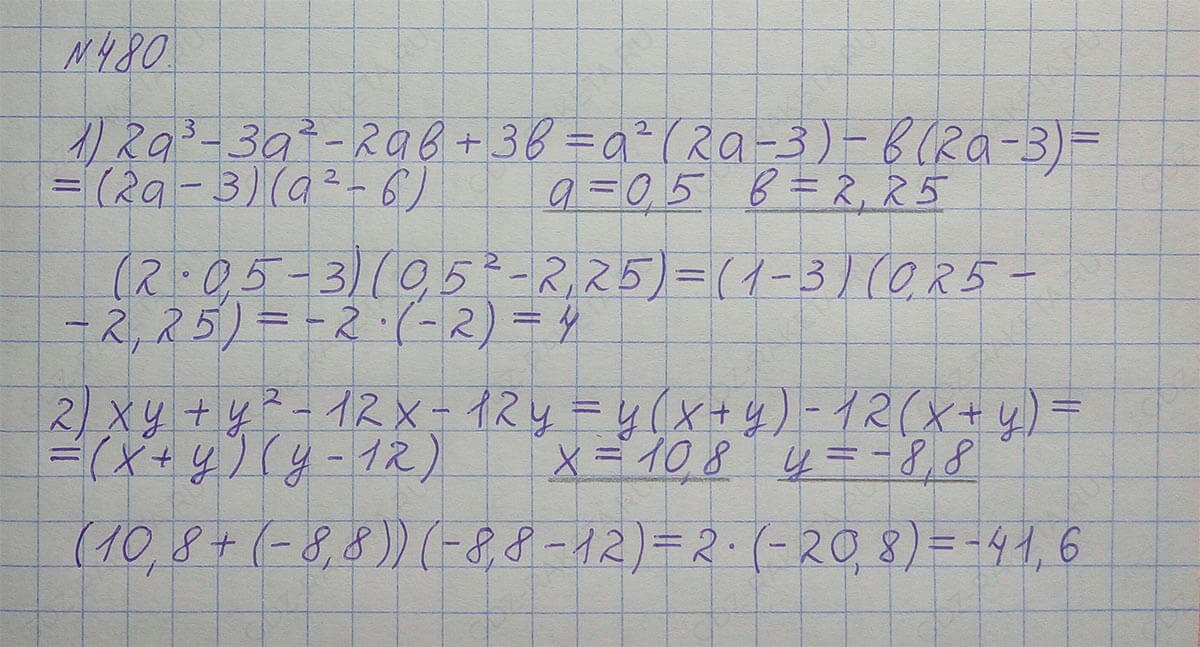 №480.
1) 2a³-3a²-2aв+3в=a²(2a-3)-в(2a-3)=
=(2a-3)(a²-б) a=0,5 в=2,25
(2·0,5-3)(0,5²-2,25)=(1-3)(0,25-
-2,25)=-2·(-2)=4
2) xy+y²-12x-12y=y(x+y)-12(x+y)=
=(x+y)(y-12) x=10,8 y=-8,8
(10,8+(-8,8))(-8,8-12)=2·(-20,8)=-41,6